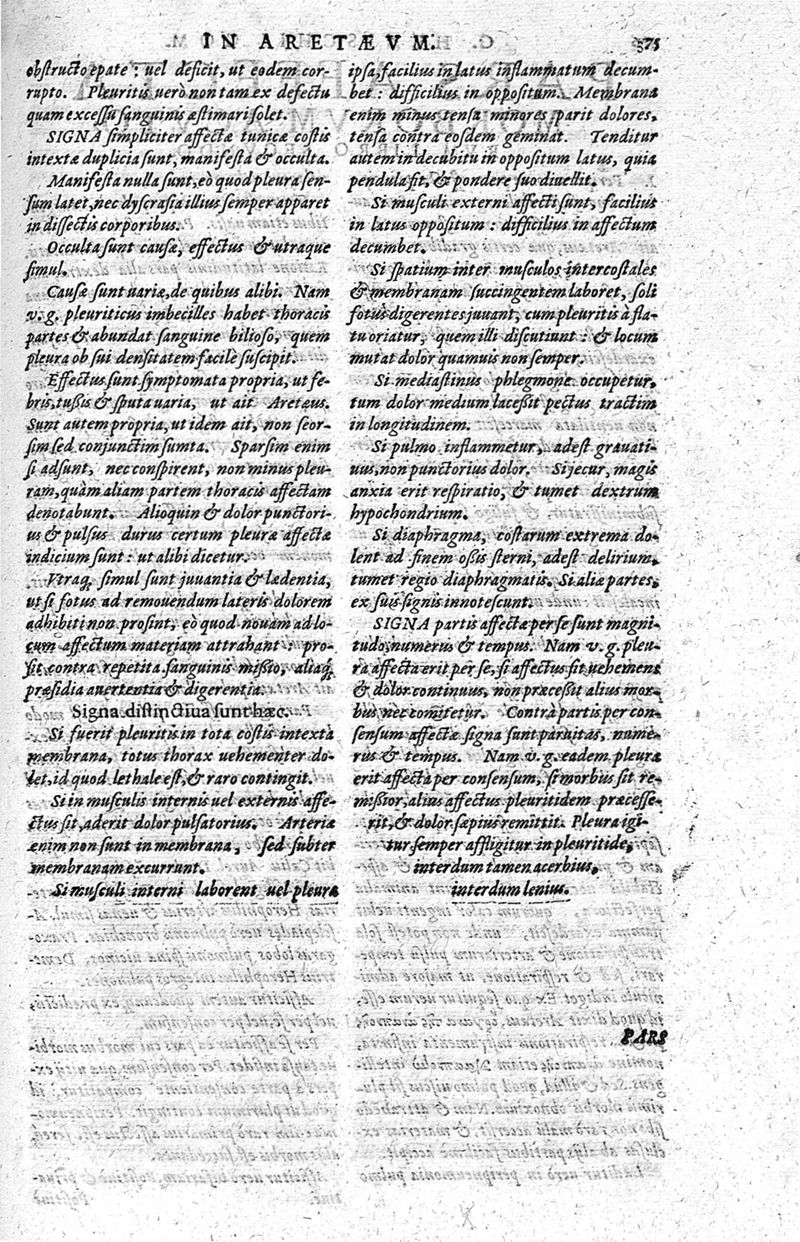 IN ARETÆVM.
375
obstructo epate : uel deficit, ut eodem cor-
rupto. Pleuritis uerò non tam ex defectu
quam excessu sanguinis æstimari solet.
SIGNA simpliciter affectæ tunicæ costis
intextæ duplicia sunt, manifesta & occulta.
Manifesta nulla sunt, eò quod pleura sen-
sum latet, nec dyscrasia illius semper apparet
in dissectis corporibus.
Occulta sunt causæ, effectus & utraque
simul.
Causæ sunt uariæ, de quibus alibi. Nam
v. g. pleuriticus imbecilles habet thoracis
partes & abundat sanguine bilioso, quem
pleura ob sui densitatem facilè suscipit.
Effectus sunt symptomata propria, ut fe-
bris, tussis & sputa uaria, ut ait Aretæus.
Sunt autem propria, ut idem ait, non seor-
sim sed conjunctim sumta. Sparsim enim
si adsunt, nec conspirent, non minus pleu-
ram, quàm aliam partem thoracis affectam
denotabunt. Alioquin & dolor punctori-
us & pulsus durus certum pleuræ affectæ
indicium sunt : ut alibi dicetur.
Vtraq; simul sunt juuantia & lædentia,
ut si fotus ad remouendum lateris dolorem
adhibiti non prosint, eò quod nouam ad lo-
cum affectum materiam attrahant : pro-
sit contra repetita sanguinis missio, aliaq;
præsidia auertentia & digerentia.
Signa distinctiua sunt hæc.
Si fuerit pleuritis in tota costis intexta
membrana, totus thorax uehementer do-
let, id quod lethale est, & raro contingit.
Si in musculis internis uel externis affe-
ctus sit, aderit dolor pulsatorius. Arteriæ
ænim non sunt in membrana, sed subter
membranam excurrunt.
Si musculi interni laborent uel pleura
ipsa, facilius in latus inflammatum decum-
bet : difficilius in oppositum. Membrana
enim minus tensa minores parit dolores,
tensa contra eosdem geminat. Tenditur
autem in decubitu in oppositum latus, quia
pendula fit, & pondere suo diuellit.
Si musculi externi affecti sunt, facilius
in latus oppositum : difficilius in affectum
decumbet.
Si spatium inter musculos intercostales
& membranam succingentem laboret, soli
fotus digerentes juuant, cum pleuritis à fla-
tu oriatur, quem illi discutiunt : & locum
mutat dolor quamuis non semper.
Si mediastinus phlegmone occupetur,
tum dolor medium lacessit pectus tractim
in longitudinem.
Si pulmo inflammetur, adest grauati-
uus, non punctorius dolor. Si jecur, magis
anxia erit respiratio, & tumet dextrum
hypochondrium.
Si diaphragma, costarum extrema do-
lent ad finem ossis sterni, adest delirium,
tumet regio diaphragmatis. Si aliæ partes,
ex suis signis innotescunt.
SIGNA partis affectæ per se sunt magni-
tudo, numerus & tempus. Nam v. g. pleu-
ra affecta erit per se, si affectus sit uehemens
& dolor continuus, non præcessit alius mor-
bus nec comitetur. Contrà partis per con-
sensum affectæ signa sunt paruitas, nume-
rus & tempus. Nam v. g. eadem pleura
erit affecta per consensum, si morbus sit re-
missior, alius affectus pleuritidem præcesse-
rit, & dolor sæpius remittit. Pleura igi-
tur semper affligitur in pleuritide,
interdum tamen acerbius,
interdum lenius.
PARS